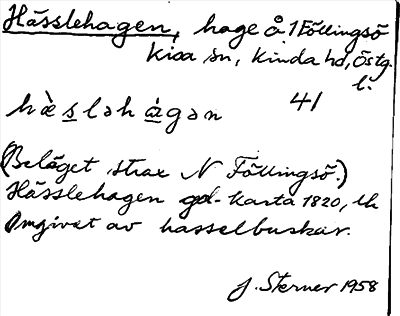 Hässlehagen, hage å 1 Föllingsö
Kisa sn, Kinda hd, Östg.
l.
41
hὲslǝhágǝn
(Beläget strax N Föllingsö.)
Hässlehagen gd-karta 1820,
Omgivet av hasselbuskar.
J. Sterner 1958